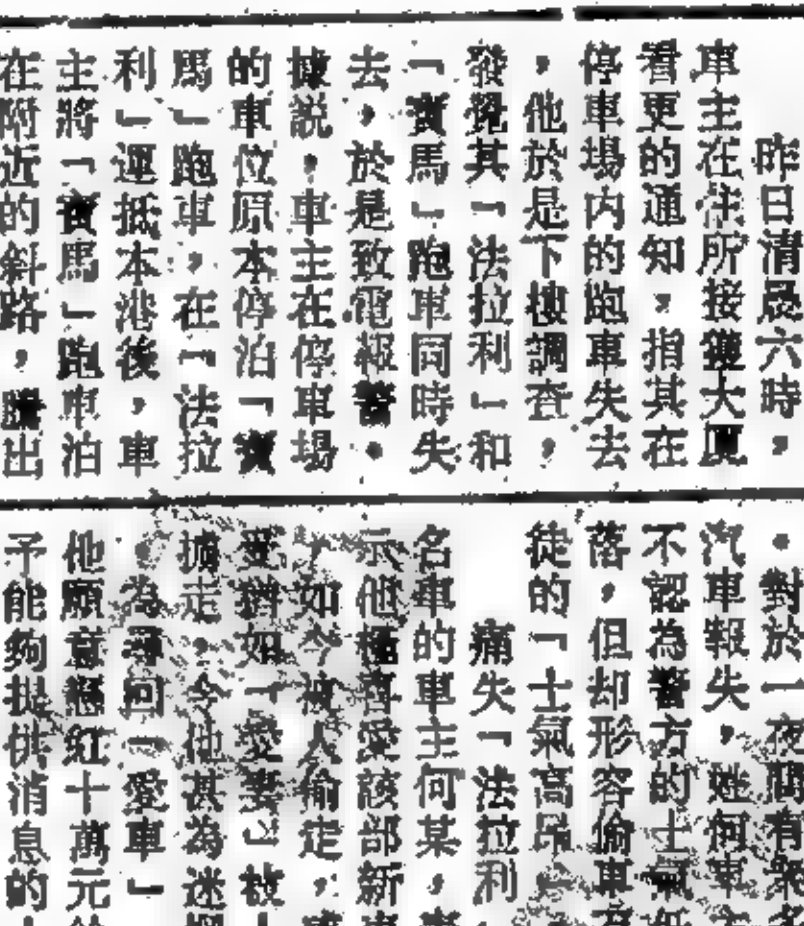 昨日清晨六時，
車主在住所接獲大厦
看更的通知，指其在
停車場内的跑車失去
，他於是下樓調查，
發覺其「法拉利」和
「寶馬」跑車同時失
去，於是致電報警。
據説，車主在停車場
的車位原本停泊「寶
馬」跑車，在「法拉
利」運抵本港後，車
主將「寶馬」跑車泊
在附近的斜路，騰出
。對於一夜間有
汽車報失，姓何車
不認為警方的士氣低
落，但却形容偷車
徒的「士氣高昂」
痛失「法拉利
名車的車主何某，
示他極喜愛該部新
，如今被人偷走，
愛猶如「愛妻」被
擄走，令他甚為迷
。為尋回「愛車」
他願意懸紅十萬元
予能夠提供消息的